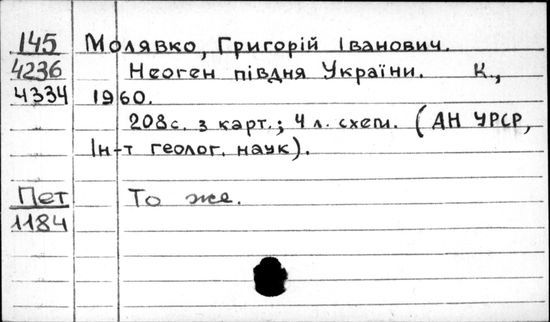 145 Молявко, Григорій Іванович.
4236 Неоген півдня України. К.,
4334 1960.
208с. з карт.; 4 л. схем. (АН УРСР,
Ін-т геолог. наук).
Пет То же.
1184